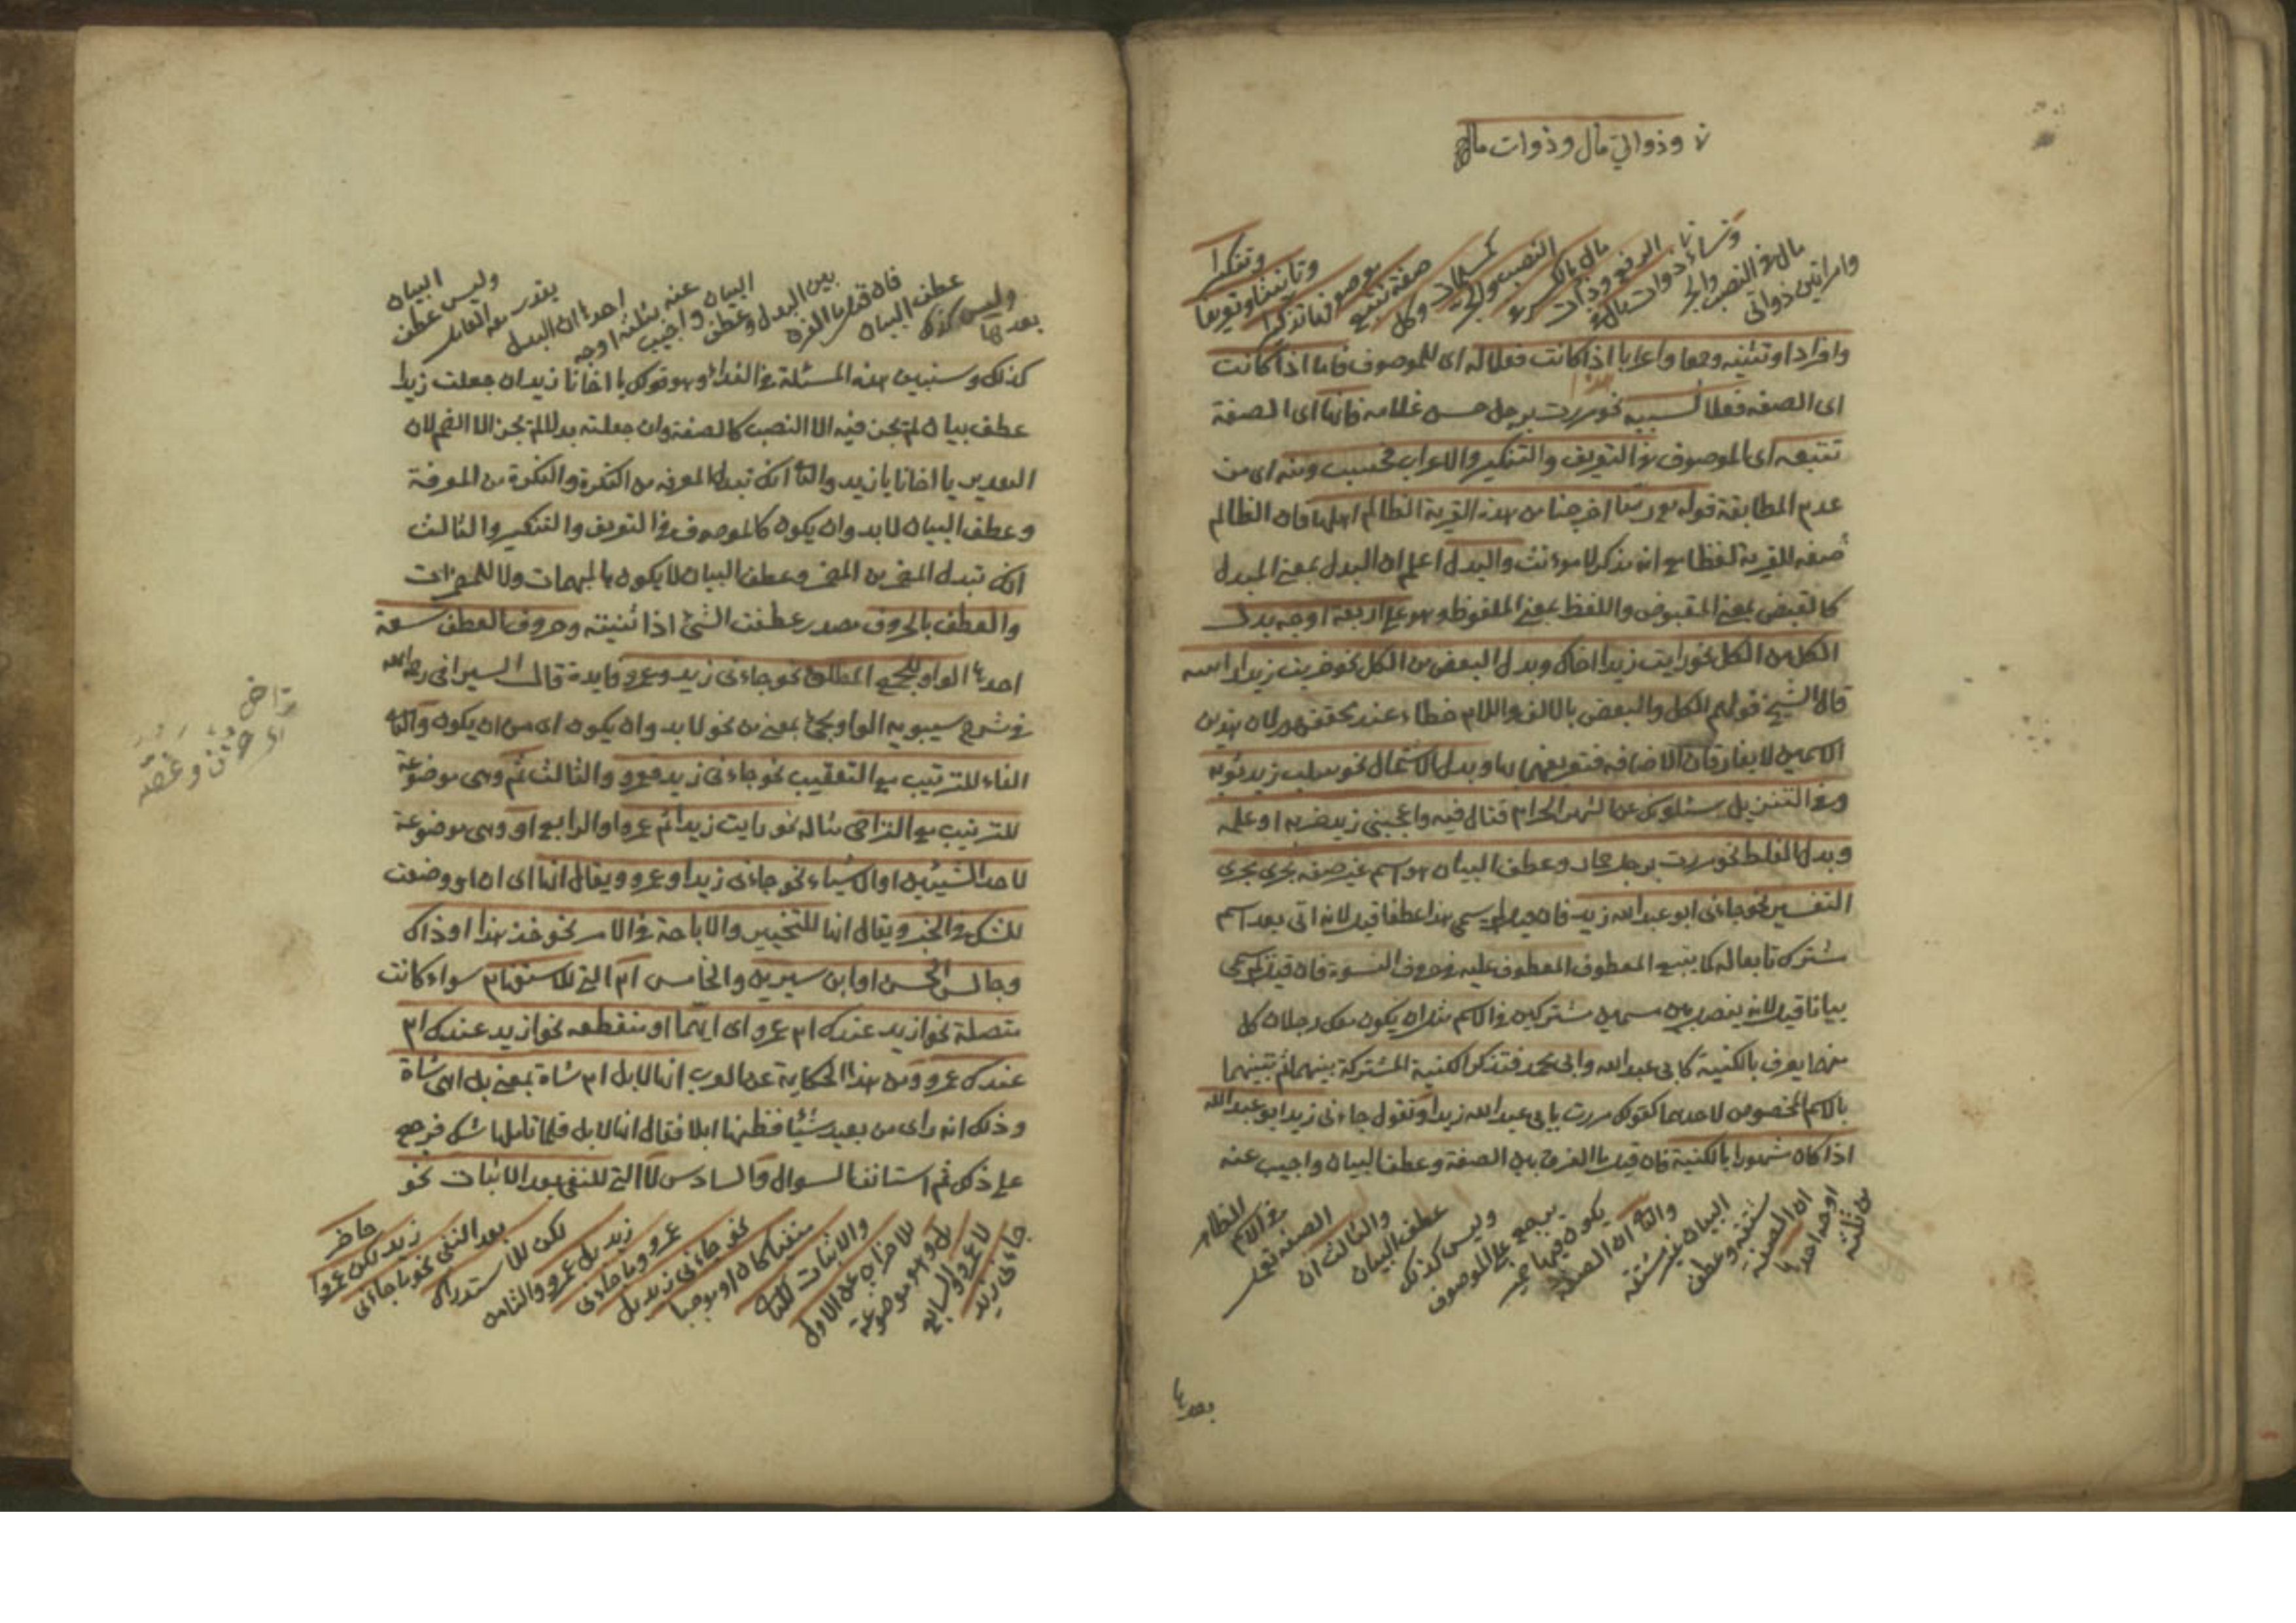 وذواتي مال وذوات مال
وامراتين ذواتي
مال في النصب والجر
ونساء ذوات مال
الرفع وذوات
مال بالكسر في
النصب والجر
كمسلمات وكل
صفة تتبع
موصوفها تذكيرا
وتانيثا وتعريفا
وتنكيرا
وافرادا وتثنية وجمعا واعرابا اذا كانت فعلا له اى للموصوف فاما اذا كانت
اى الصفة فعلا لسببه نحو مررت برجل حسن غلامه فانها اى الصفة
تتبعه اى الموصوف في التعريف والتنكير والاعراب فحسب ومنه اى من
عدم المطابقة قوله تع ربنا اخرجنا من هذه القرية الظالم اهلها فان الظالم
صفة للقرية لفظا مع انه مذكر لا مؤنث والبدل اعلم ان البدل بمعنى المبدل
كالقبض بمعنى المقبوض واللفظ بمعنى الملفوظ وهو على اربعة اوجه بدل
الكل من الكل نحو رايت زيدا اخاك وبدل البعض من الكل نحو ضربت زيدا راسه
قال الشيخ قولهم الكل والبعض بالالف واللام خطاء عند محققهم لان هذين
الاسمين لا يفارقان الاضافة فتعريفهما بها وبدل الاشتمال نحو سلب زيد ثوبه
وفي التنزيل يسئلونك عن الشهر الحرام قتال فيه واعجبني زيد ضربه او علمه
وبدل الغلط نحو مررت برجل حمار وعطف البيان هو اسم غير صفة يجرى مجرى
التفسير نحو جاءنى ابو عبد الله زيد فان قيل لم يسمى هذا عطفا قيل لانه اتى بعد اسم
مشترك تابعا له كما يتبع المعطوف المعطوف عليه في حروف النسق فان قيل لم سمى
بيانا قيل لانه يفصل بين مسمين مشتركين في الاسم مثل ان يكون معك رجلان كل
منهما يعرف بالكنية كابى عبد الله وابى محمد فتذكر الكنية المشتركة بينهما ثم تبينهما
بالاسم المخصوص لاحدهما كقولك مررت بابى عبد الله زيد او تقول جاءنى زيد ابو عبد الله
اذا كان مشهورا بالكنية فان قيل ما الفرق بين الصفة وعطف البيان واجيب عنه
من ثلثة
اوجه احدها
ان الصفة
مشتقة وعطف
البيان غير مشتقة
والثانى ان الصفة
يكون فيها ضمير
يرجع على الموصوف
وليس كذلك
عطف البيان
والثالث ان
الصفة تعمل
في الاسم
الظاهر
بعدها
بعدها
وليس كذلك
عطف البيان
فان قيل ما الفرق
بين البدل وعطف
البيان واجيب
عنه بثلثة اوجه
احدها ان البدل
يقدر معه العامل
وليس عطف
البيان
كذلك وسنبين هذه المسئلة في النداء وهو قولك يا اخانا زيدا ان جعلت زيدا
عطف بيان لم تجز فيه الا النصب كالصفة وان جعلته بدلا لم تجز الا الضم لان
التقدير يا اخانا يا زيد والثانى انك تبدل المعرفة من النكرة والنكرة من المعرفة
وعطف البيان لا بد وان يكون كالموصوف في التعريف والتنكير والثالث
انك تبدل المضمر من المضمر وعطف البيان لا يكون بالمبهمات ولا المضمرات
والعطف بالحروف مصدر عطفت الشئ اذا ثنيته وحروف العطف تسعة
احدها الواو للجمع المطلق نحو جاءنى زيد وعمرو فايدة قال السيرافى رحمه الله
في شرح سيبويه الواو يجئ بمعنى من نحو لا بد وان يكون اى من ان يكون والثانى
الفاء للترتيب مع التعقيب نحو جاءنى زيد فعمرو والثالث ثم وهى موضوعة
للترتيب مع التراخى مثاله نحو رايت زيدا ثم عمروا والرابع او وهى موضوعة
لاحد الشيئين او الاشياء نحو جاءنى زيد او عمرو ويقال انها اى ان او وضعت
للشك في الخبر ويقال انها للتخيير والاباحة في الامر نحو خذ هذا او ذاك
وجالس الحسن او ابن سيرين والخامس ام التى للاستفهام سواء كانت
متصلة نحو ازيد عندك ام عمرو اى ايهما او منقطعة نحو ازيد عندك ام
عندك عمرو ومن هذا الحكاية عن العرب انها لابل ام شاة بمعنى بل اهى شاة
وذلك انه راى من بعيد شيئا فظنها ابلا فقال انها لابل فلما تاملها شك فرجع
على ذلك ثم استانف السوال والسادس لا التى للنفى بعد الاثبات نحو
جاءنى زيد
لا عمرو والسابع
بل وهو موضوعة
للاضراب عن الاول
والاثبات للثانى
منفيا كان او موجبا
نحو جاءنى زيد بل
عمرو وما جاءنى
زيد بل عمرو والثامن
لكن للاستدراك
بعد النفى نحو ما جاءنى
زيد لكن عمروا
حاضر
تراخى
اى حزن وغصّه